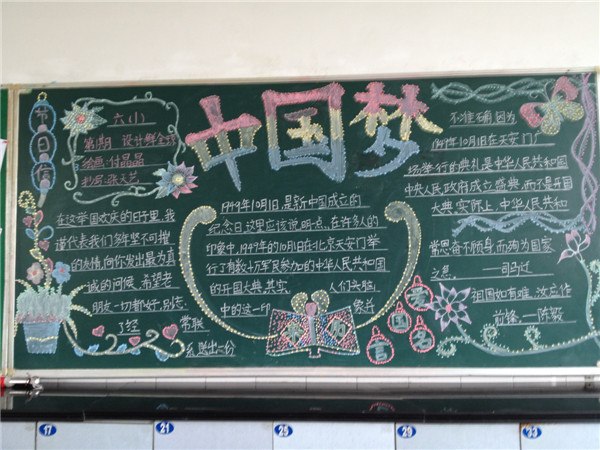 中国梦
节日信
六(1)
第1期 设计:鲜全
绘画:付晶晶
抄写:张天艺
在这举国欢庆的日子里,我
谨代表我们多年坚不可摧
的友情,向你发出最为真
诚的问候,希望老
朋友一切都好,别忘
了经
常联
系
1949年10月1日,是新中国成立的
纪念日.这里应该说明一点,在许多人的
印象中,1949年的10月1日在北京天安门举
行了有数十万军民参加的中华人民共和国
的开国大典.其实,
人们头脑
中的这一印
象并
不准确.因为
1949年10月1日在天安门广
场举行的典礼是中华人民共和国
中央人民政府成立盛典,而不是开国
大典.实际上,中华人民共和
常思奋不顾身,而殉为国家
之急 ——司马迁
祖国如有难,汝应作
前锋 ——陈毅
爱
国
名
言
17
21
25
29
33